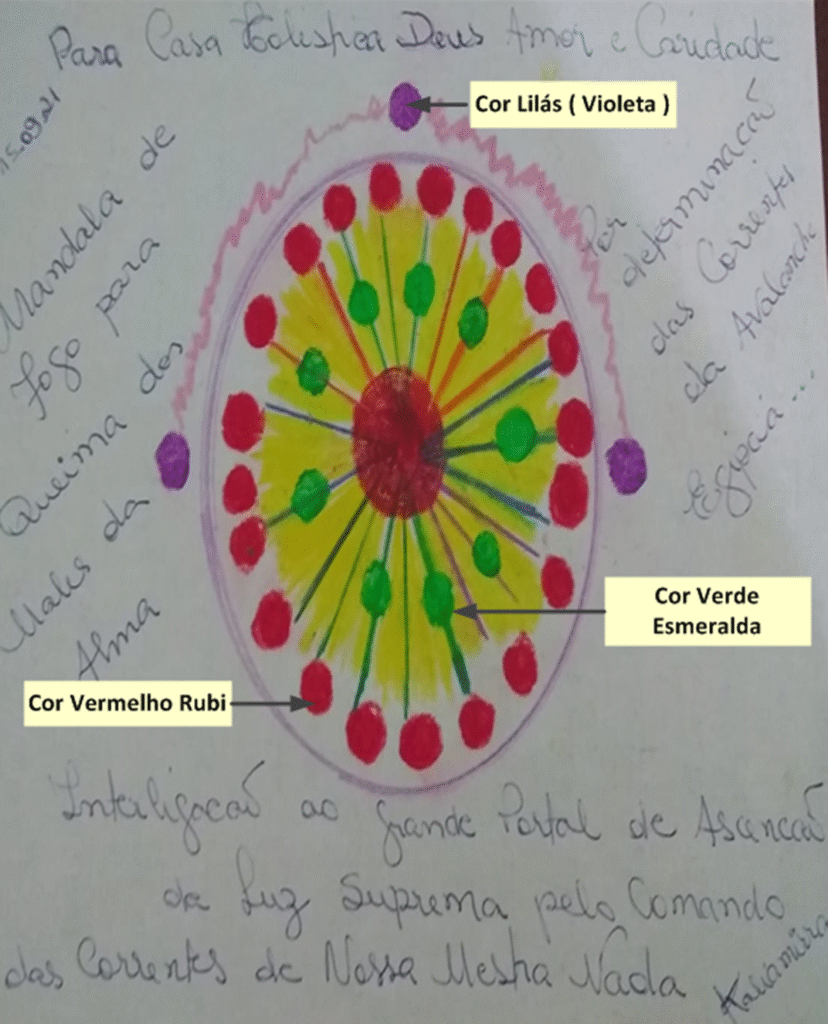 Para Casa Ecléspica Deus Amor e Caridade
15.09.21
Cor Lilás ( Violeta )
Mandala de
Fogo para
Queima dos
Males da
Alma
Por
determinação
das Correntes
da Avalanche
Egípcia...
Cor Verde
Esmeralda
Cor Vermelho Rubi
Interligação ao grande Portal de Ascencão
da Luz Suprema pelo Comando
das Correntes de Nossa Mestra Nada